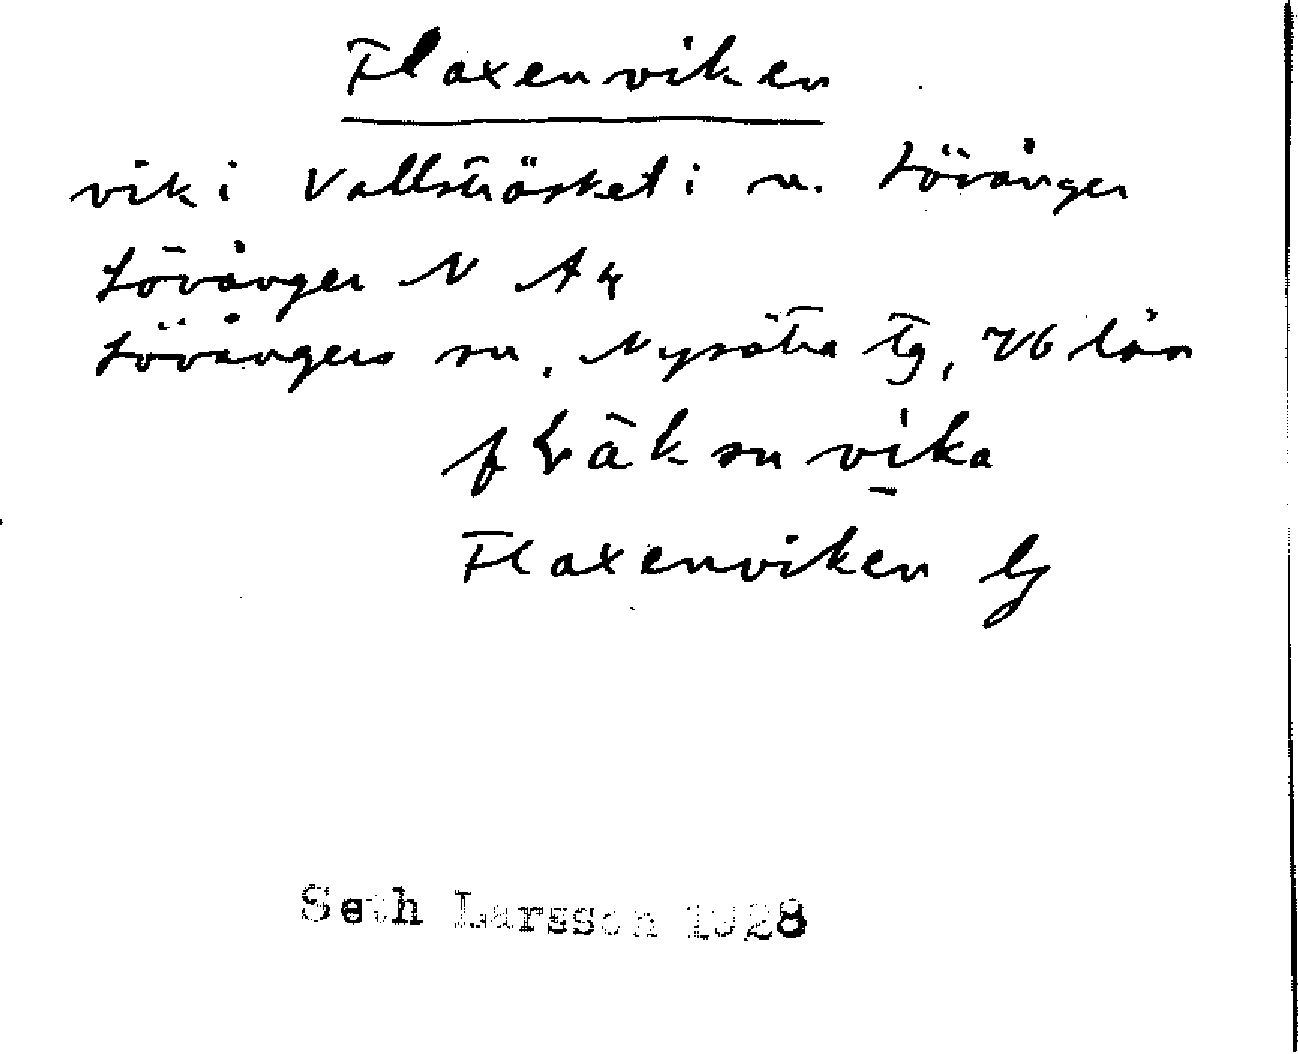 Flaxenviken
vik i Vallsträsket i n. Lövånger
Lövånger N A 4
Lövångers sn, Nysätra tg, Vb län
Flaxenviken lg
Seth Larsson 1928